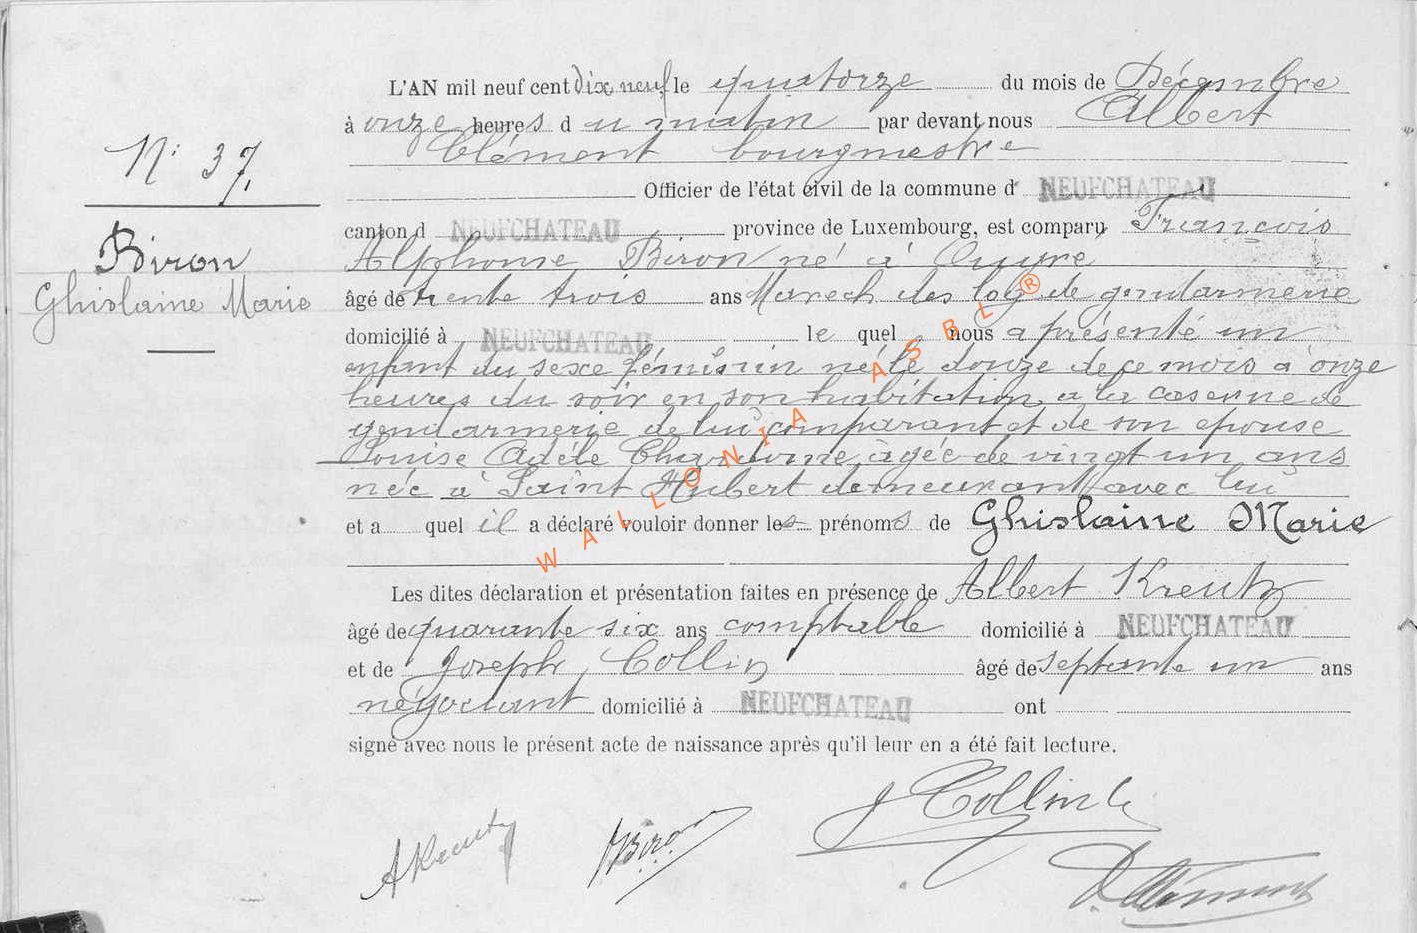 L'AN mil neuf cent dix neuf le quatorze du mois de Décembre
à onze heures du matin par devant nous Albert
Clément bourgmestre
N° 37.
Officier de l'état civil de la commune d NEUFCHATEAU
canton d NEUFCHATEAU province de Luxembourg, est comparu François
Biron
Alphonse Biron né à
Ghislaine Marie
âgé de trente trois ans Marech des log de gendarmerie
domicilié à NEUFCHATEAU le quel nous a présenté un
enfant du sexe féminin né le douze de ce mois à onze
heures du soir en son habitation a la caserne de
gendarmerie de lui comparant et de son epouse
Louise Adèle agée de vingt un ans
née à Saint Hubert demeurant avec lui
et a quel il a déclaré vouloir donner les prénoms de Ghislaine Marie
WALLONIA ASBL ®
Les dites déclaration et présentation faites en présence de Albert Kreutz
âgé de quarante six ans comptable domicilié à NEUFCHATEAU
et de Joseph Collin âgé de septante un ans
négociant domicilié à NEUFCHATEAU ont
signé avec nous le présent acte de naissance après qu'il leur en a été fait lecture.
J Collin
AKreutz Biron
Clément